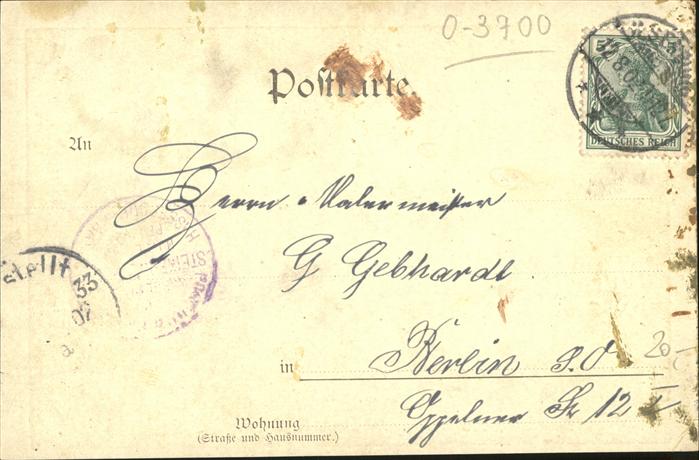 0-3700
Postkarte.
5
DEUTSCHES REICH
An
Herrn Malermeister
G Gebhardt
in Berlin S.O
Oppelner Str 12 I
20-
Wohnung
(Straße und Hausnummer.)
stellt
33
02